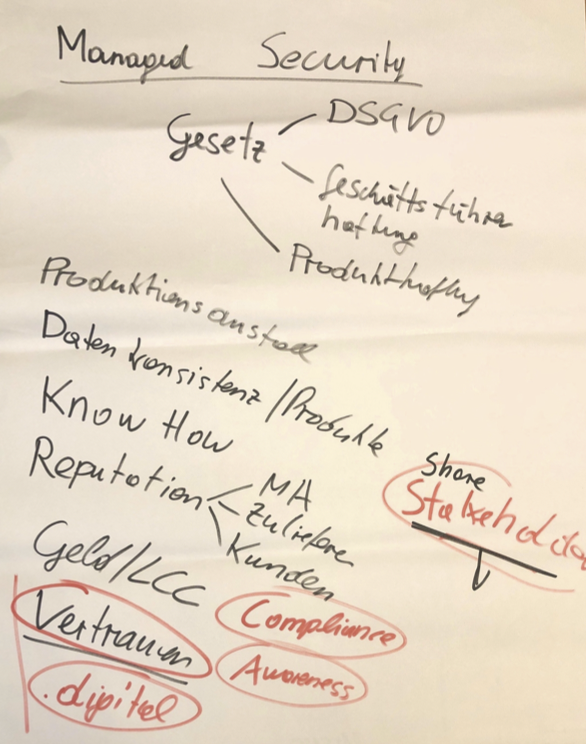 Managed Security
Gesetz
DSGVO
Geschäftsführer
haftung
Produkthaftg
Produktionsausfall
Datenkonsistenz/Produkte
Know How
Reputation
MA
Zulieferer
Kunden
Share
Stakeholder
Geld/LCC
Vertrauen
Compliance
Awareness
.digital